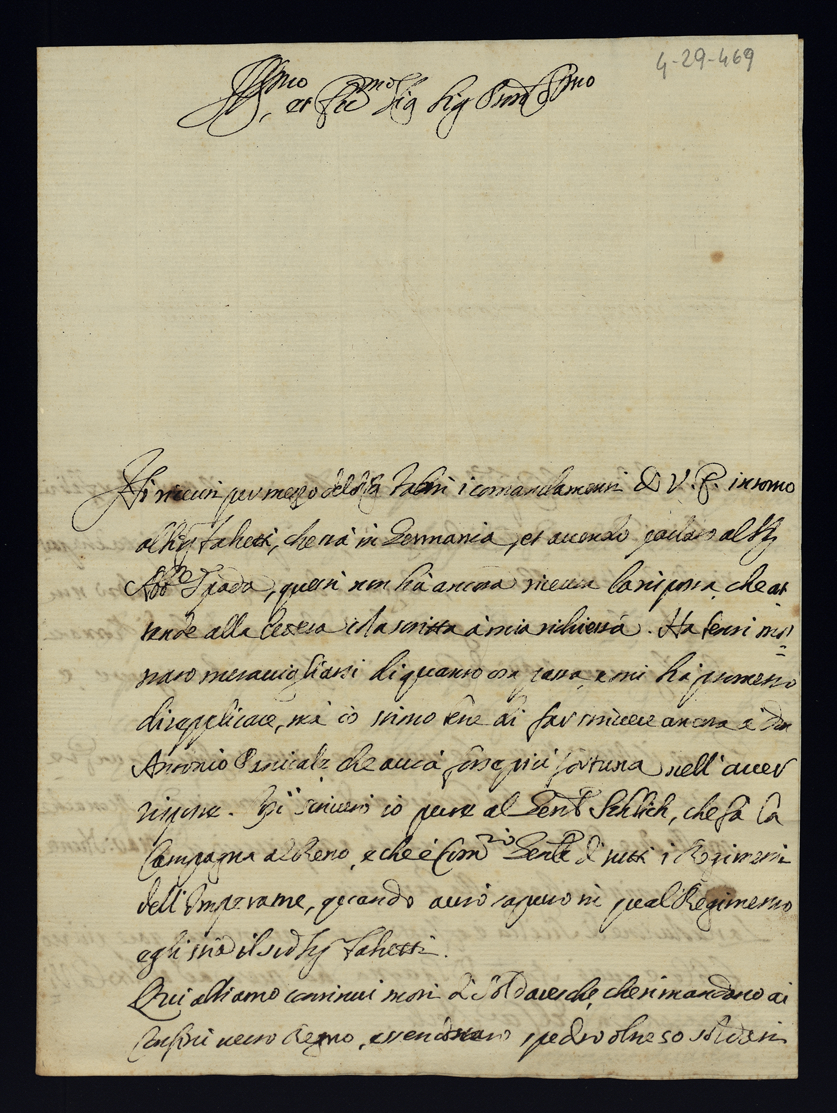 4-29-469
Ill.mo et Ecc.mo Sig Sig Pron Oss.mo
Hi ricevi per mezo del Sig Fabri i comandamenti di V. E. intorno
al Sig Fahetti, che stà in Germania, et avendo parlato al Sig
Abb.te Spada, questi non hà ancora ricevuta la risposta che at
tende alla lettera da scritta à mia richiesta. Ha
strato meravigliarsi di quanto e mi hà promesso
di replicare, mà io stimo bene di far scrivere ancora a Don
Antonio che avrà forse più fortuna nell'aver
risposta. scriverò io pure al Gen.l Schlich, che fà la
Campagna al Reno, e che è Com.rio Gen.le di tutti i Regimenti
dell'Imperante, quando avrò saputo in qual Regimento
egli stia il sud.o Sig Fahetti.
Qui abbiamo continui moti di Soldatesche, che si mandano ai
Confini verso Regno, e spedro oltre 50 soldati